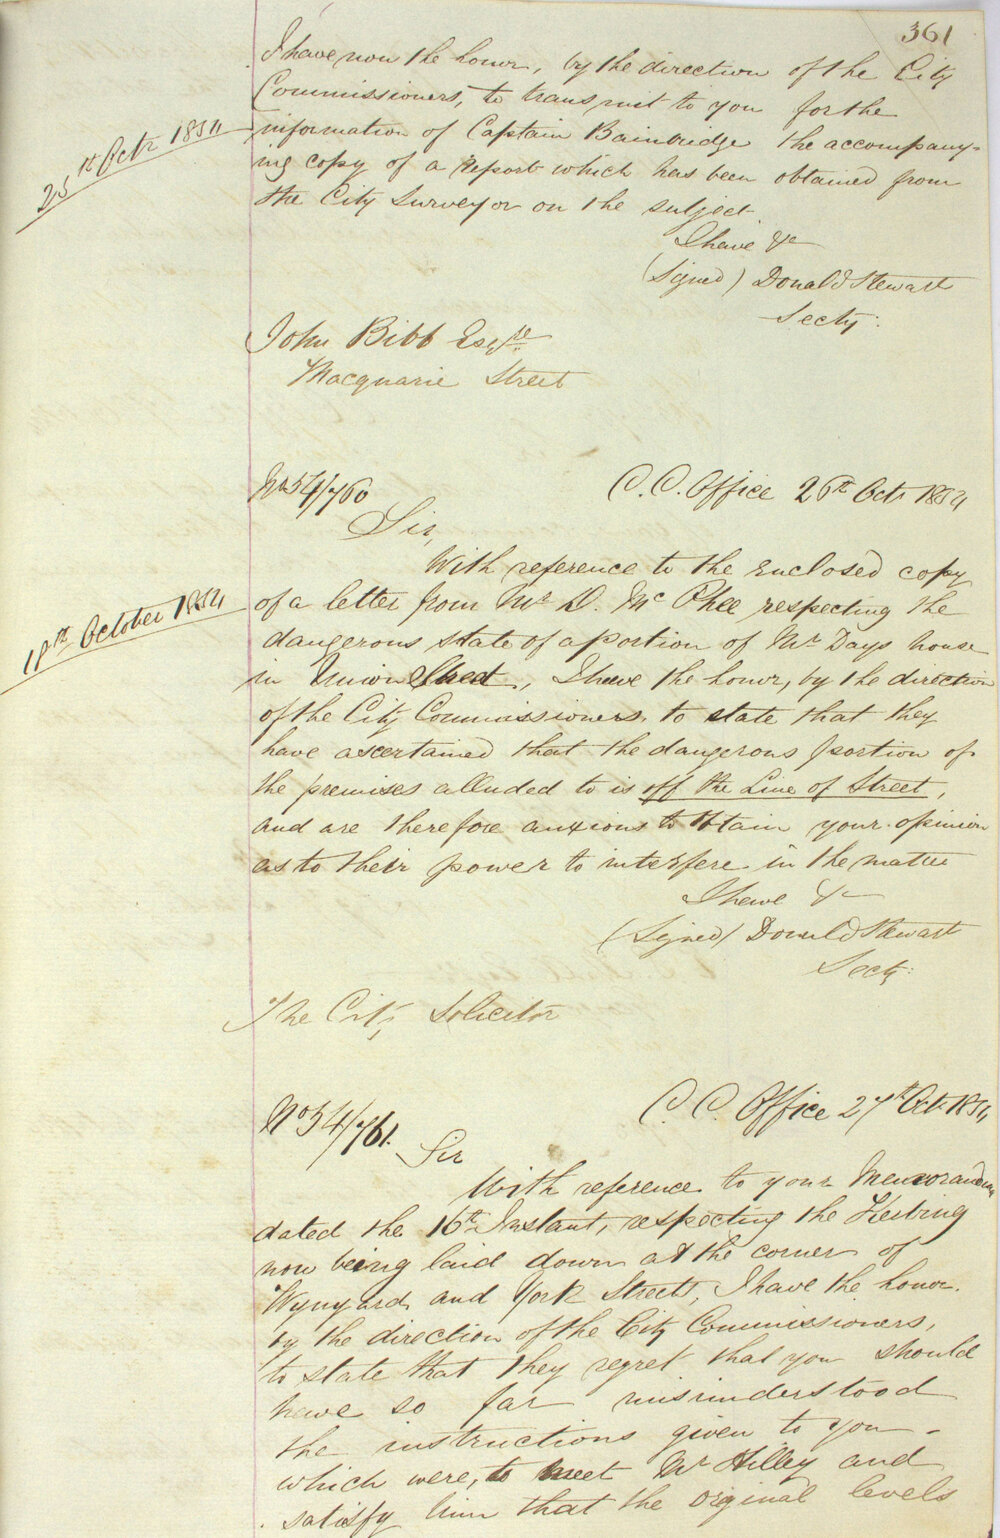 361
I have now the honor, by the direction of the City
Commissioners, to transmit to you for the
25th Octr 1854
information of Captain Bainbridge the accompany-
ing copy of a report which has been obtained from
the City Surveyor on the subject.
I have &c
(Signed) Donald Stewart
Secty:
John Bibb Esqre
Macquarie Street
No 54/760
C. C. Office 26th Octr 1854
Sir,
With reference to the enclosed copy
18th October 1854
of a letter from Mr D. Mc Phee respecting the
dangerous state of a portion of Mr Days house
in Union Street, I have the honor, by the direction
of the City Commissioners, to state that they
have ascertained that the dangerous portion of
the premises alluded to is off the Line of Street,
and are therefore anxious to obtain your opinion
as to their power to interfere in the matter
I have &c
(Signed) Donald Stewart
Secty:
The City Solicitor
No 54/761.
C. C. Office 27th Octr 1854
Sir
With reference to your Memorandum
dated the 16th Instant, respecting the Kerbing
now being laid down at the corner of
Wynyard and York Streets, I have the honor,
by the direction of the City Commissioners,
to state that they regret that you should
have so far misunderstood
the instructions given to you -
which were, to meet Mr Hilley and
satisfy him that the original levels